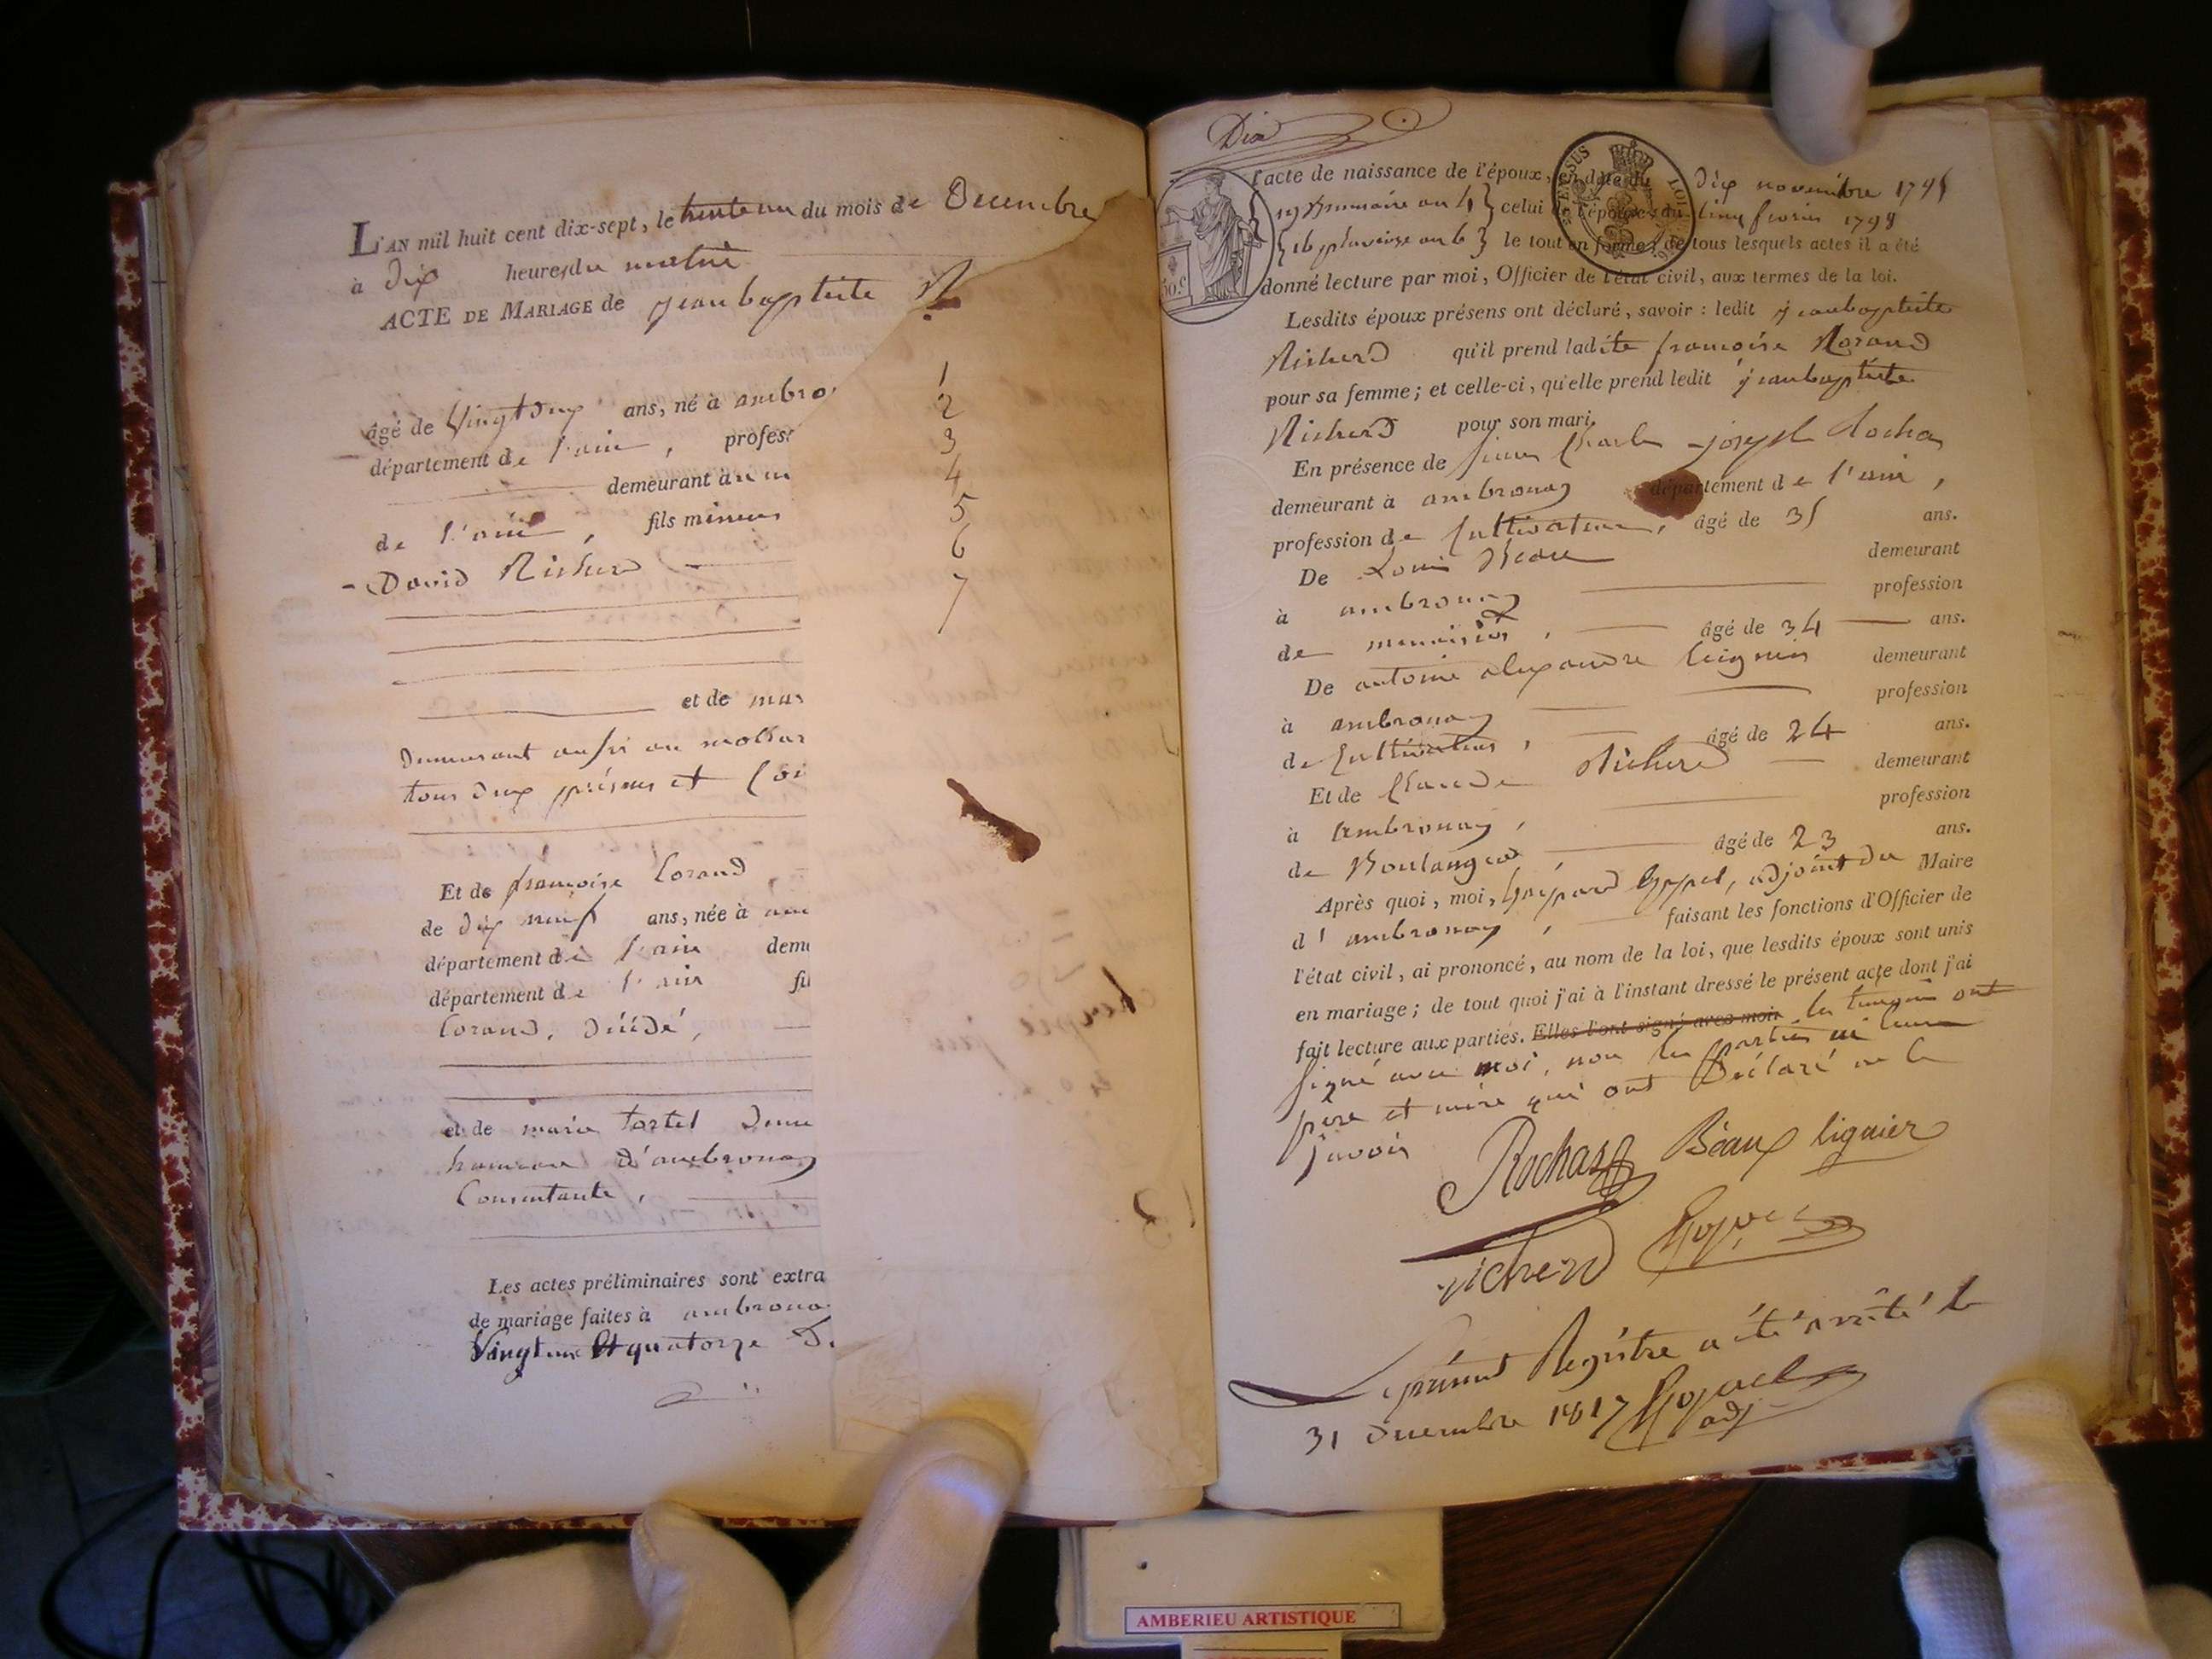 L'AN mil huit cent dix-sept, le trente un du mois de Decembre
à dix heures du matin
ACTE DE MARIAGE de jean baptiste R
âgé de Vingt deux ans, né à ambro
département de l'ain, profes
demeurant au m
de l'ain, fils mineur
David Richerd
et de mar
demeurant aussi au mollar
tous deux présens et Con
Et de françoise Lorand
de dix neuf ans, née à am
département de l'ain deme
département de l'ain fil
Lorand, décédé,
et de marie tortel deme
hameau d'ambronay
Consentante,
Les actes préliminaires sont extra
de mariage faites à ambrona
Vingt un Et quatorze D
1
2
3
4
5
6
7
Dix
l'acte de naissance de l'époux, en date du dix novembre 1795
{19 Brumaire an 4} celui de l'épouse du cinq fevrier 1798
{16 pluviose an 6} le tout en forme; de tous lesquels actes il a été
donné lecture par moi, Officier de l'état civil, aux termes de la loi.
Lesdits époux présens ont déclaré, savoir : ledit jean baptiste
Richerd qu'il prend ladite françoise Lorand
pour sa femme; et celle-ci, qu'elle prend ledit jean baptiste
Richerd pour son mari.
En présence de sieur Charle joseph Rochas
demeurant à ambronay département de l'ain,
profession de Cultivateur, âgé de 35 ans.
De Louis Beau demeurant
à ambronay profession
de menuisier, âgé de 34 ans.
De antoine alexandre Lignier demeurant
à ambronay profession
de Cultivateur, âgé de 24 ans.
Et de Claude Richerd demeurant
à Ambronay, profession
de Boulanger, âgé de 23 ans.
Après quoi, moi, Gaspard adjoint du Maire
d'ambronay, faisant les fonctions d'Officier de
l'état civil, ai prononcé, au nom de la loi, que lesdits époux sont unis
en mariage; de tout quoi j'ai à l'instant dressé le présent acte dont j'ai
fait lecture aux parties. Elles l'ont signé avec moi. les temoins ont
signé avec moi, non les parties ni leurs
pere et mère qui ont Déclaré ne le
savoir
Rochas Béaux lignier
richerd
Le présent Registre a été arrété le
31 decembre 1817
adj
50 c.
AMBERIEU ARTISTIQUE